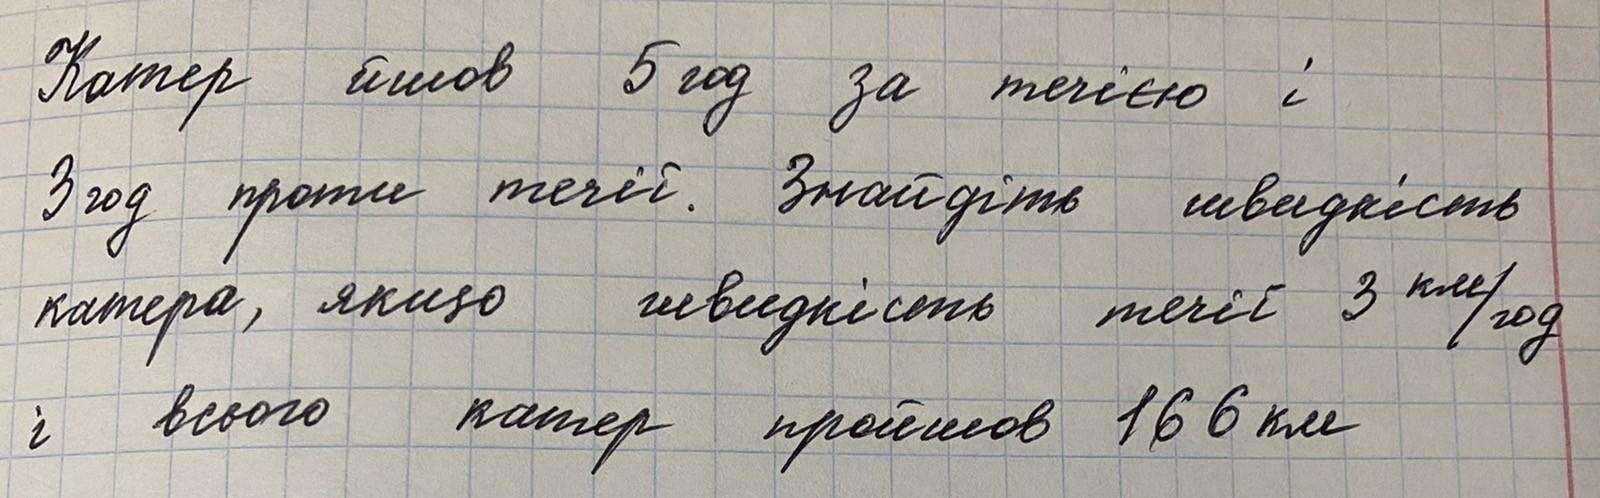 Катер йшов 5 год за течією і
3 год проти течії. Знайдіть швидкість
катера, якщо швидкість течії 3 км/год
і всього катер пройшов 166 км